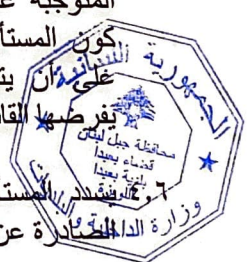 المتوجبة ع
كون المستأ
على أن يت
يفرضها القا
٤,٦ يسدد المست
الصادرة عن
الجمهورية اللبنانية
محافظة جبل لبنان
قضاء بعبدا
بلدية بعبدا
اللويزة
وزارة الداخلية